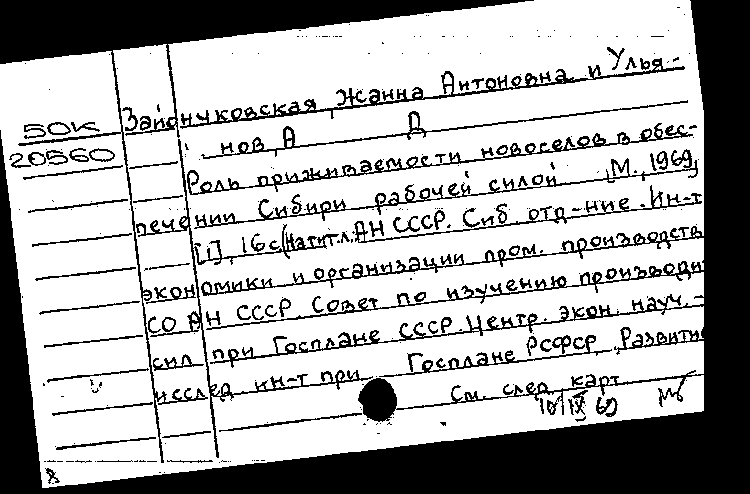 50К
20560
Зайончковская, Жанна Антоновна и Улья-
нов, А Д
Роль приживаемости новоселов в обес-
печении Сибири рабочей силой [М., 1969]
[1], 16 с (На тит. л. АН СССР. Сиб отд-ние. Ин-т
экономики и организации пром. производств
СО АН СССР. Совет по изучению производи
сил при Госплане СССР. Центр. экон. науч.-
исслед ин-т при Госплане РСФСР. Развитие
См. след карт
10/IX 69
8